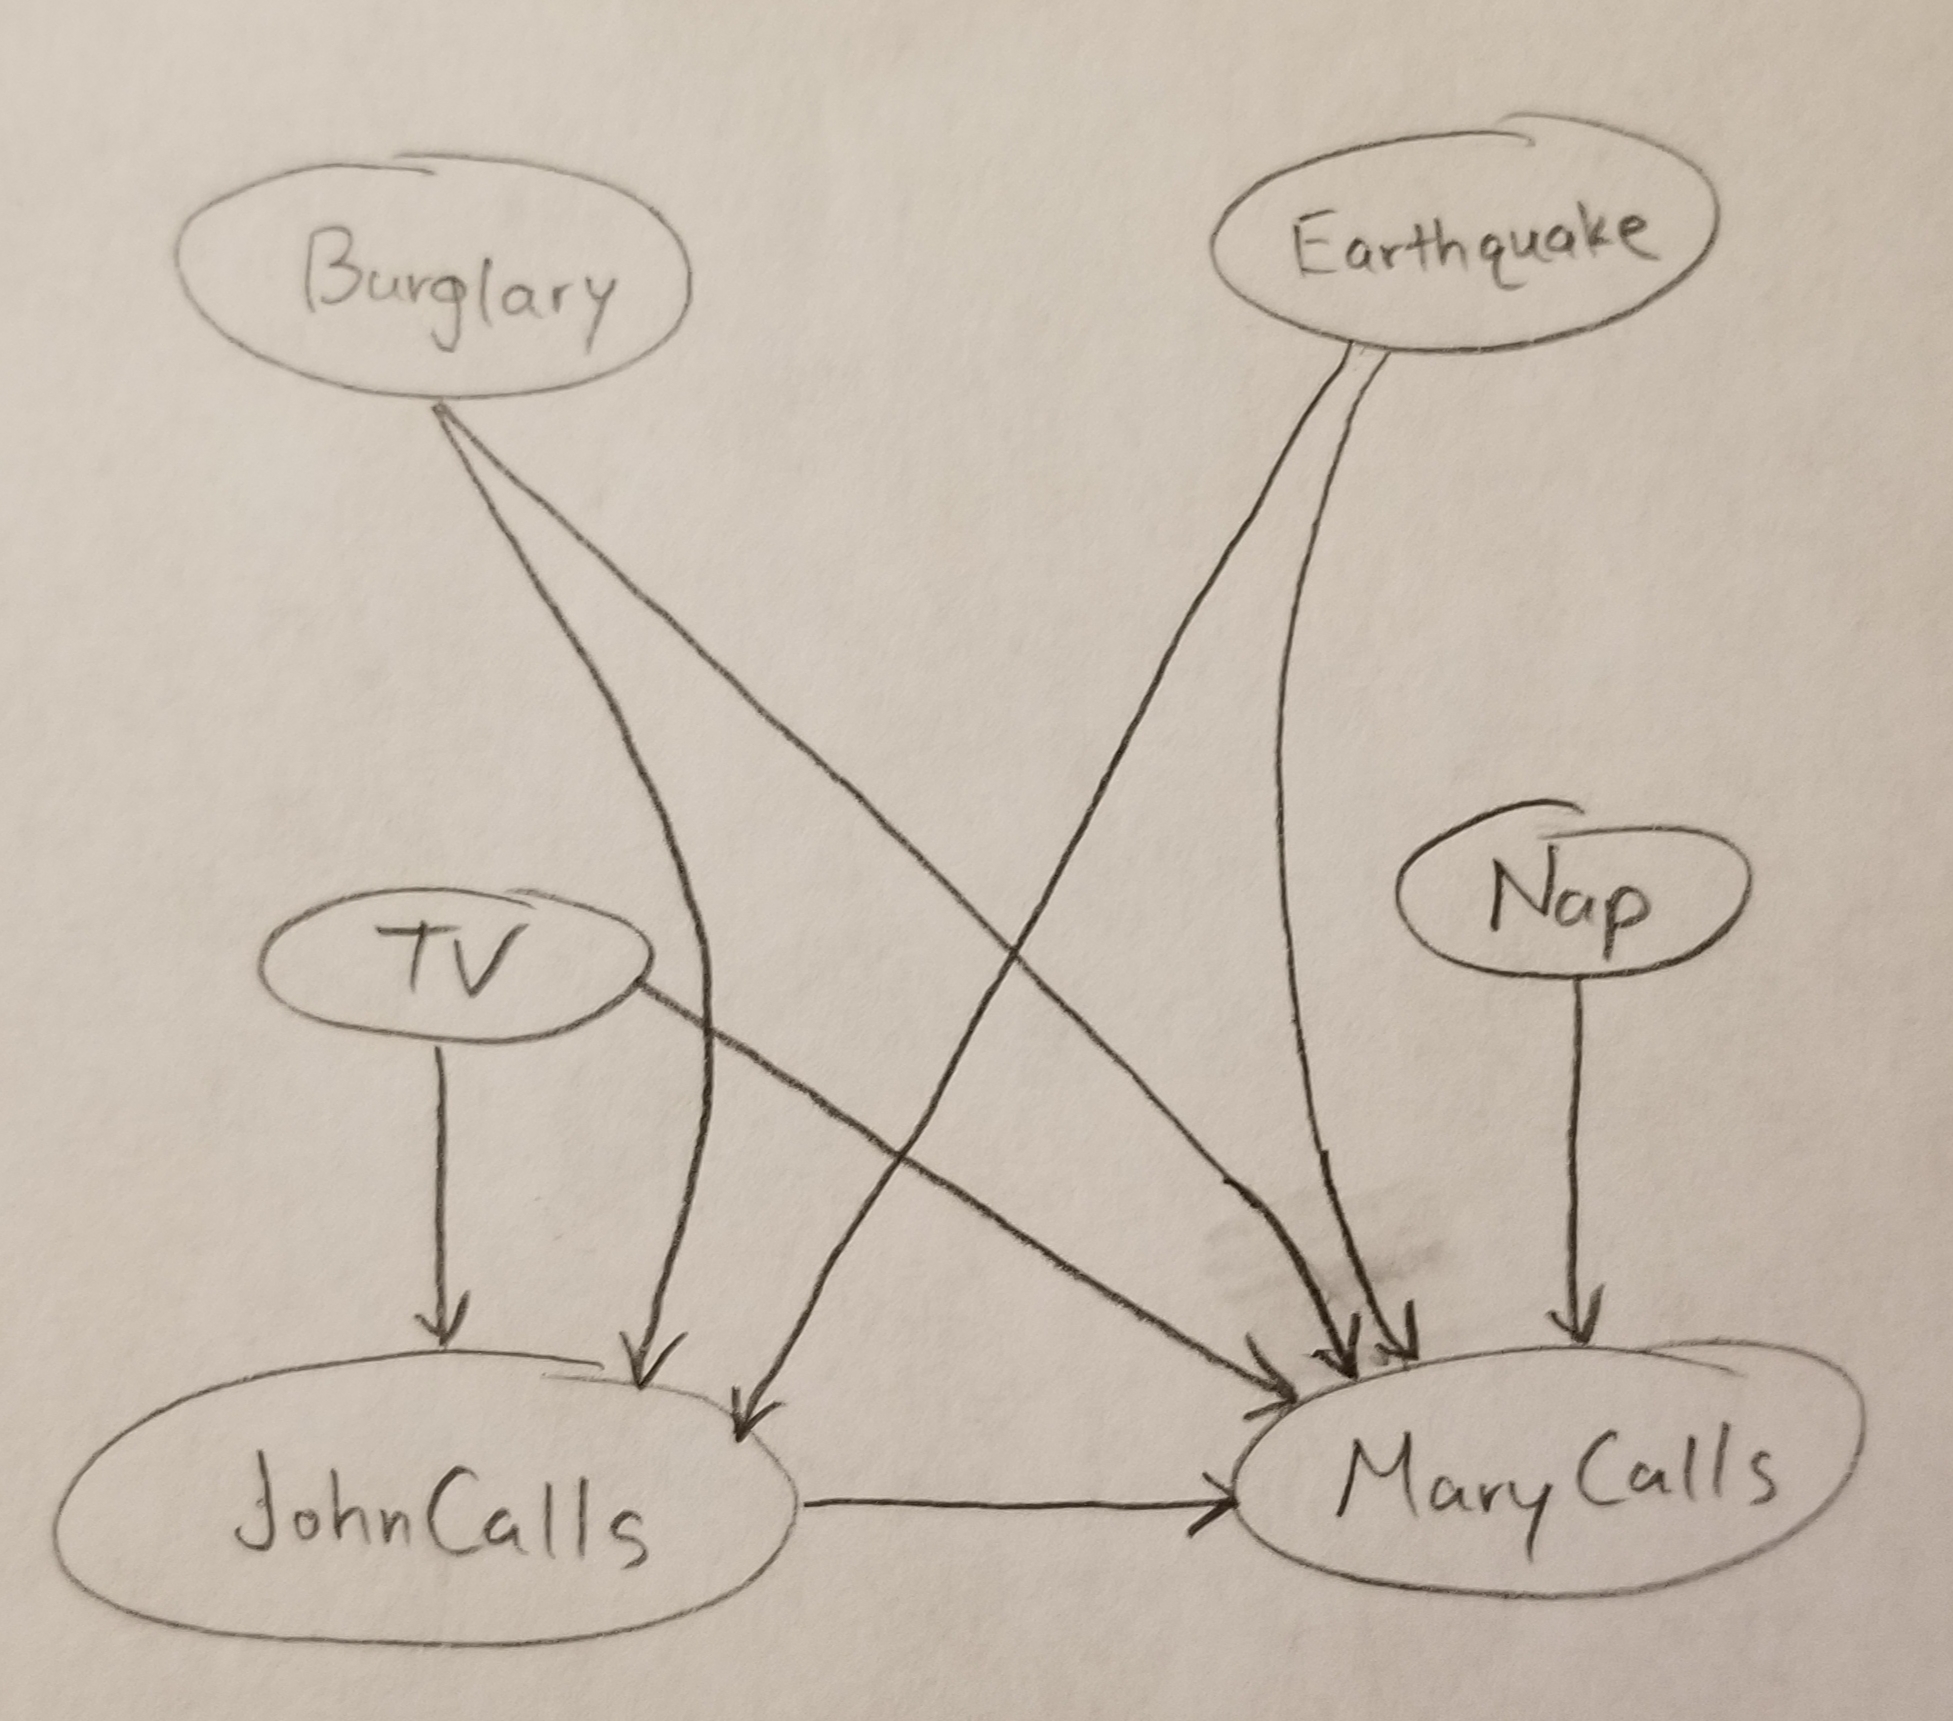 Burglary
Earthquake
TV
Nap
JohnCalls
MaryCalls